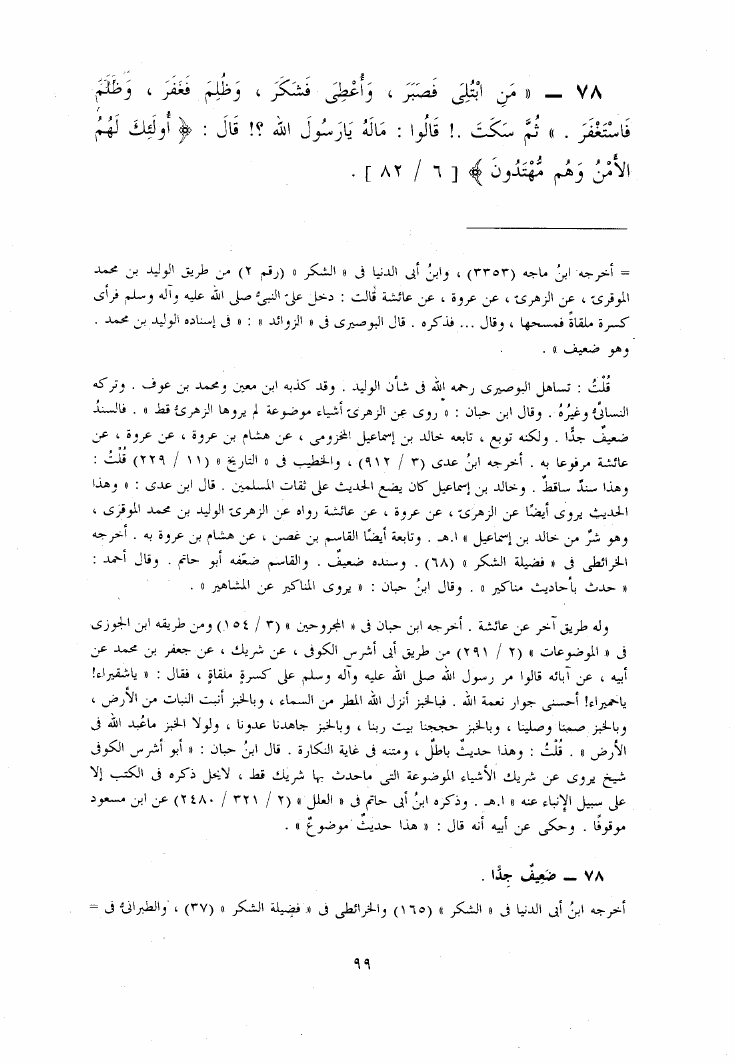 ٧٨ ــ « مَنِ ابْتُلِىَ فَصَبَرَ ، وَأُعْطِىَ فَشَكَرَ ، وَظُلِمَ فَغَفَرَ ، وَظَلَمَ
فَاسْتَغْفَرَ . » ثُمَّ سَكَتَ .! قَالُوا : مَالَهُ يَارَسُولَ الله ؟! قَالَ : ﴿ أُولَئِكَ لَهُمُ
الأَمْنُ وَهُم مُّهْتَدُونَ ﴾ [ ٦ / ٨٢ ] .
= أخرجه ابنُ ماجه (٣٣٥٣) ، وابنُ أبى الدنيا فى « الشكر » (رقم ٢) من طريق الوليد بن محمد
الموقرىّ ، عن الزهرىّ ، عن عروة ، عن عائشة قالت : دخل علىّ النبىُّ صلى الله عليه وآله وسلم فرأى
كسرة ملقاةً فمسحها ، وقال ... فذكره . قال البوصيرى فى « الزوائد » : « فى إسناده الوليد بن محمد .
وهو ضعيف » .
قُلْتُ : تساهل البوصيرى رحمه الله فى شأن الوليد . وقد كذبه ابن معين ومحمد بن عوف . وتركه
النسائىُّ وغيرُهُ . وقال ابن حبان : « روى عن الزهرىّ أشياء موضوعة لم يروها الزهرىُّ قط » . فالسندُ
ضعيفٌ جدًّا . ولكنه توبع ، تابعه خالد بن إسماعيل المخزومى ، عن هشام بن عروة ، عن عروة ، عن
عائشة مرفوعا به . أخرجه ابنُ عدى (٣ / ٩١٢) ، والخطيب فى « التاريخ » (١١ / ٢٢٩) قُلْتُ :
وهذا سندٌ ساقطٌ . وخالد بن إسماعيل كان يضع الحديث على ثقات المسلمين . قال ابن عدى : « وهذا
الحديث يروى أيضًا عن الزهرىّ ، عن عروة ، عن عائشة رواه عن الزهرىّ الوليد بن محمد الموقرى ،
وهو شرٌّ من خالد بن إسماعيل » ا.هـ . وتابعة أيضًا القاسم بن غصن ، عن هشام بن عروة به . أخرجه
الخرائطى فى « فضيلة الشكر » (٦٨) . وسنده ضعيفٌ . والقاسم ضعّفه أبو حاتم . وقال أحمد :
« حدث بأحاديث مناكير » . وقال ابنُ حبان : « يروى المناكير عن المشاهير » .
وله طريق آخر عن عائشة . أخرجه ابن حبان فى « المجروحين » (٣ / ١٥٤) ومن طريقه ابن الجوزى
فى « الموضوعات » (٢ / ٢٩١) من طريق أبى أشرس الكوفى ، عن شريك ، عن جعفر بن محمد عن
أبيه ، عن آبائه قالوا مر رسول الله صلى الله عليه وآله وسلم على كسرةٍ ملقاةٍ ، فقال : « ياشقيراء!
ياحميراء! أحسنى جوار نعمة الله . فبالخبز أنزل الله المطر من السماء ، وبالخبز أنبت النبات من الأرض ،
وبالخبز صمنا وصلينا ، وبالخبز حججنا بيت ربنا ، وبالخبز جاهدنا عدونا ، ولولا الخبز ماعُبد الله فى
الأرض » . قُلْتُ : وهذا حديثٌ باطلٌ ، ومتنه فى غاية النكارة . قال ابنُ حبان : « أبو أشرس الكوفى
شيخ يروى عن شريك الأشياء الموضوعة التى ماحدث بها شريك قط ، لايحل ذكره فى الكتب إلا
على سبيل الإنباء عنه » ا.هـ . وذكره ابنُ أبى حاتم فى « العلل » (٢ / ٣٢١ / ٢٤٨٠) عن ابن مسعود
موقوفًا . وحكى عن أبيه أنه قال : « هذا حديثٌ موضوعٌ » .
٧٨ ــ ضَعِيفٌ جِدًّا .
أخرجه ابنُ أبى الدنيا فى « الشكر » (١٦٥) والخرائطى فى « فضيلة الشكر » (٣٧) ، والطبرانىُّ فى =
٩٩